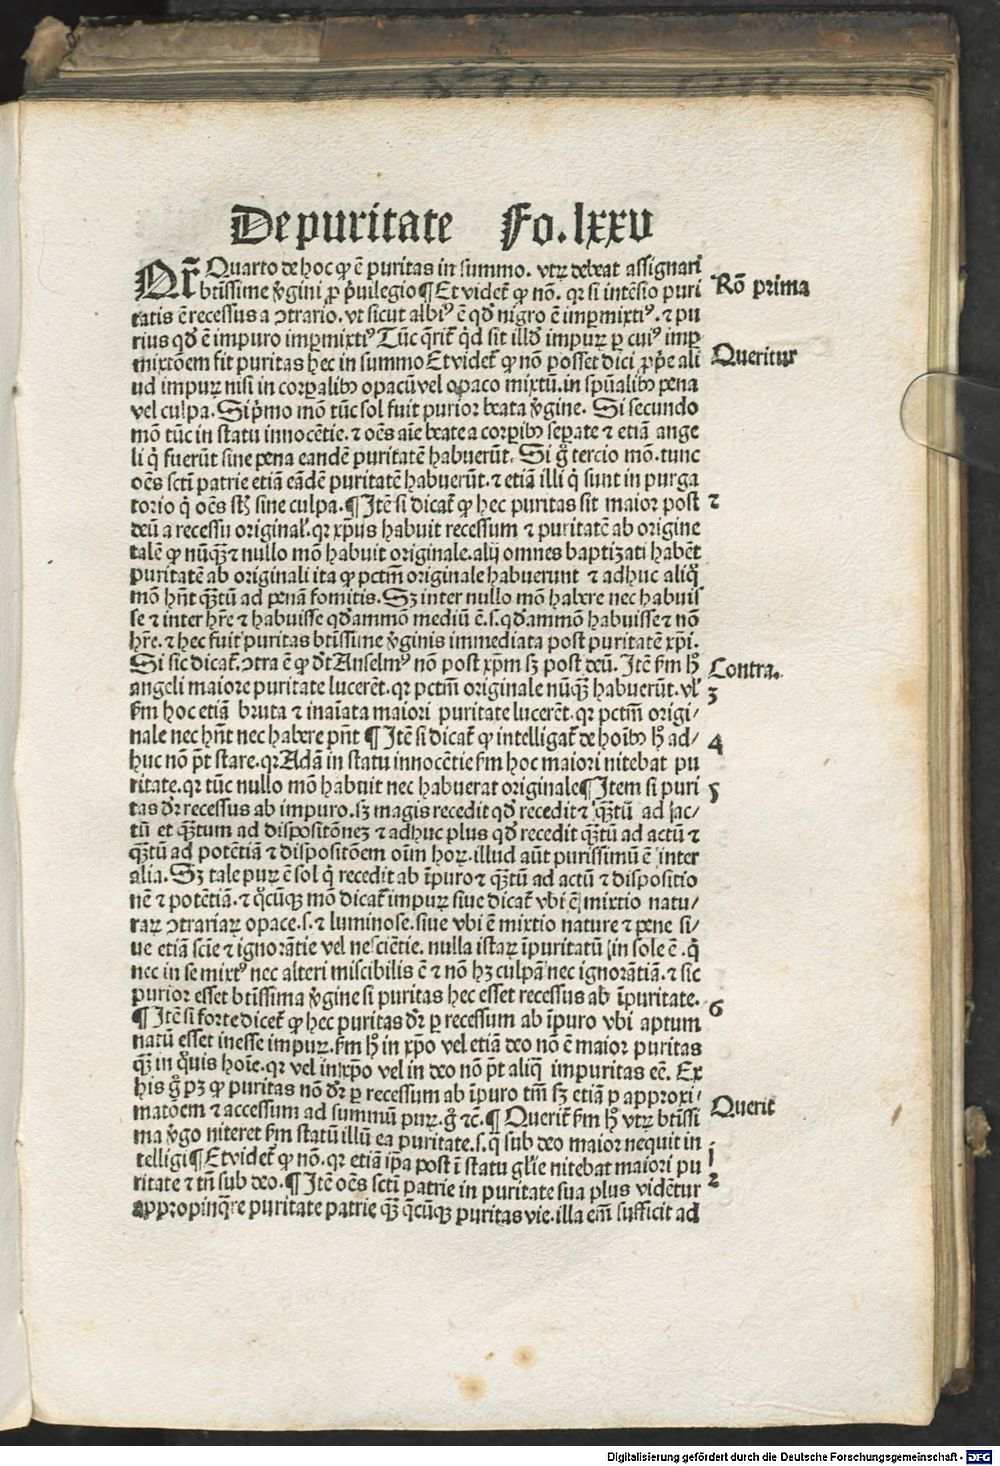 De puritate Fo. lxxv
Nr̄ Quarto de hoc ꝙ ē puritas in summo. vtꝝ debeat assignari
btissime v̄gini ꝓ p̄uilegio ¶ Et videt̄ ꝙ nō. qꝛ si intēsio puri
tatis ē recessus a ↄtrario. vt sicut albiꝰ ē qd̄ nigro ē imꝑmixtiꝰ. ⁊ pu
rius qd̄ ē impuro imꝑmixtiꝰ Tūc q̄rit̄ qd̄ sit illd̄ impuꝝ ꝑ cuiꝰ imꝑ
mixtōem fit puritas hec in summo Et videt̄ ꝙ nō posset dici ꝓpe ali
ud impuꝝ nisi in corꝑalibꝰ opacū vel opaco mixtū. in spūalibꝰ pena
vel culpa. Si pͥmo mō tūc sol fuit purior beata v̄gine. Si secundo
mō tūc in statu innocētie. ⁊ oēs aīe beate a corꝑibꝰ seꝑate ⁊ etiā ange
li qͥ fuerūt sine pena eandē puritatē habuerūt. Si gͦ tercio mō. tunc
oēs scti patrie etiā eādē puritatē habuerūt. ⁊ etiā illi qͥ sunt in purga
torio qͥ oēs st̄ sine culpa. ¶ Itē si dicat̄ ꝙ hec puritas sit maior post
deū a recessu original'. qꝛ xp̄us habuit recessum ⁊ puritatē ab origine
talē ꝙ nūqꝫ ⁊ nullo mō habuit originale. alij omnes baptizati habēt
puritatē ab originali ita ꝙ pctm̄ originale habuerunt ⁊ adhuc aliqͦ
mō hn̄t qꝫtū ad penā fomitis. Sꝫ inter nullo mō habere nec habuis
se ⁊ inter hr̄e ⁊ habuisse qd̄ammō mediū ē. s. qd̄ammō habuisse ⁊ nō
hr̄e. ⁊ hec fuit puritas btissime v̄ginis immediata post puritatē xp̄i.
Si sic dicat̄. ↄtra ē ꝙ dt̄ Anselmꝰ nō post xp̄m sꝫ post deū. Itē fm̄ hͦ
angeli maiore puritate lucerēt. qꝛ pctm̄ originale nūqꝫ habuerūt. vl'
fm̄ hoc etiā bruta ⁊ inaīata maiori puritate lucerēt. qꝛ pctm̄ origi/
nale nec hn̄t nec habere pn̄t ¶ Itē si dicat̄ ꝙ intelligat̄ de hoībꝰ hͦ ad/
huc nō pt̄ stare. qꝛ Adā in statu innocētie fm̄ hoc maiori nitebat pu
ritate. qꝛ tūc nullo mō habuit nec habuerat originale ¶ Item si puri
tas dr̄ recessus ab impuro. sꝫ magis recedit qd̄ recedit ⁊ qꝫtū ad ac/
tū et qꝫtum ad dispositōneꝫ ⁊ adhuc plus qd̄ recedit qꝫtū ad actū ⁊
qꝫtū ad potētiā ⁊ dispositōem oīm hoꝝ. illud aūt purissimū ē inter
alia. Sꝫ tale puꝝ ē sol qͥ recedit ab īpuro ⁊ qꝫtū ad actū ⁊ dispositio
nē ⁊ potētiā. ⁊ qͦcūqꝫ mō dicat̄ impuꝝ siue dicat̄ vbi ē mixtio natu/
raꝝ ↄtrariaꝝ opace. s. ⁊ luminose. siue vbi ē mixtio nature ⁊ pene si/
ue etiā scīe ⁊ ignorātie vel nesciētie. nulla istaꝝ īpuritatū in sole ē. qͥ
nec in se mixtꝰ nec alteri miscibilis ē ⁊ nō hꝫ culpā nec ignorātiā. ⁊ sic
purior esset btissima v̄gine si puritas hec esset recessus ab īpuritate.
¶ Itē si forte dicet̄ ꝙ hec puritas dr̄ ꝑ recessum ab īpuro vbi aptum
natū esset inesse impuꝝ. fm̄ hͦ in xp̄o vel etiā deo nō ē maior puritas
qꝫ in qͦuis hoīe. qꝛ vel in xp̄o vel in deo nō pt̄ aliqͣ impuritas ec̄. Ex
his gͦ pꝫ ꝙ puritas nō dr̄ ꝑ recessum ab īpuro tm̄ sꝫ etiā ꝑ approxi/
matōem ⁊ accessum ad summū puꝝ. gͦ ⁊c̄. ¶ Querit̄ fm̄ hͦ vtꝝ btissi
ma v̄go niteret fm̄ statū illū ea puritate. s. qͣ sub deo maior nequit in
telligi ¶ Et videt̄ ꝙ nō. qꝛ etiā ip̄a post ī statu gl'ie nitebat maiori pu
ritate ⁊ tn̄ sub deo. ¶ Itē oēs scti patrie in puritate sua plus vidētur
appropinqͣre puritate patrie qꝫ qͣcūqꝫ puritas vie. illa em̄ sufficit ad
Rō prima
Queritur
2
Contra.
3
4
5
6
Querit
1
2
Digitalisierung gefördert durch die Deutsche Forschungsgemeinschaft - DFG